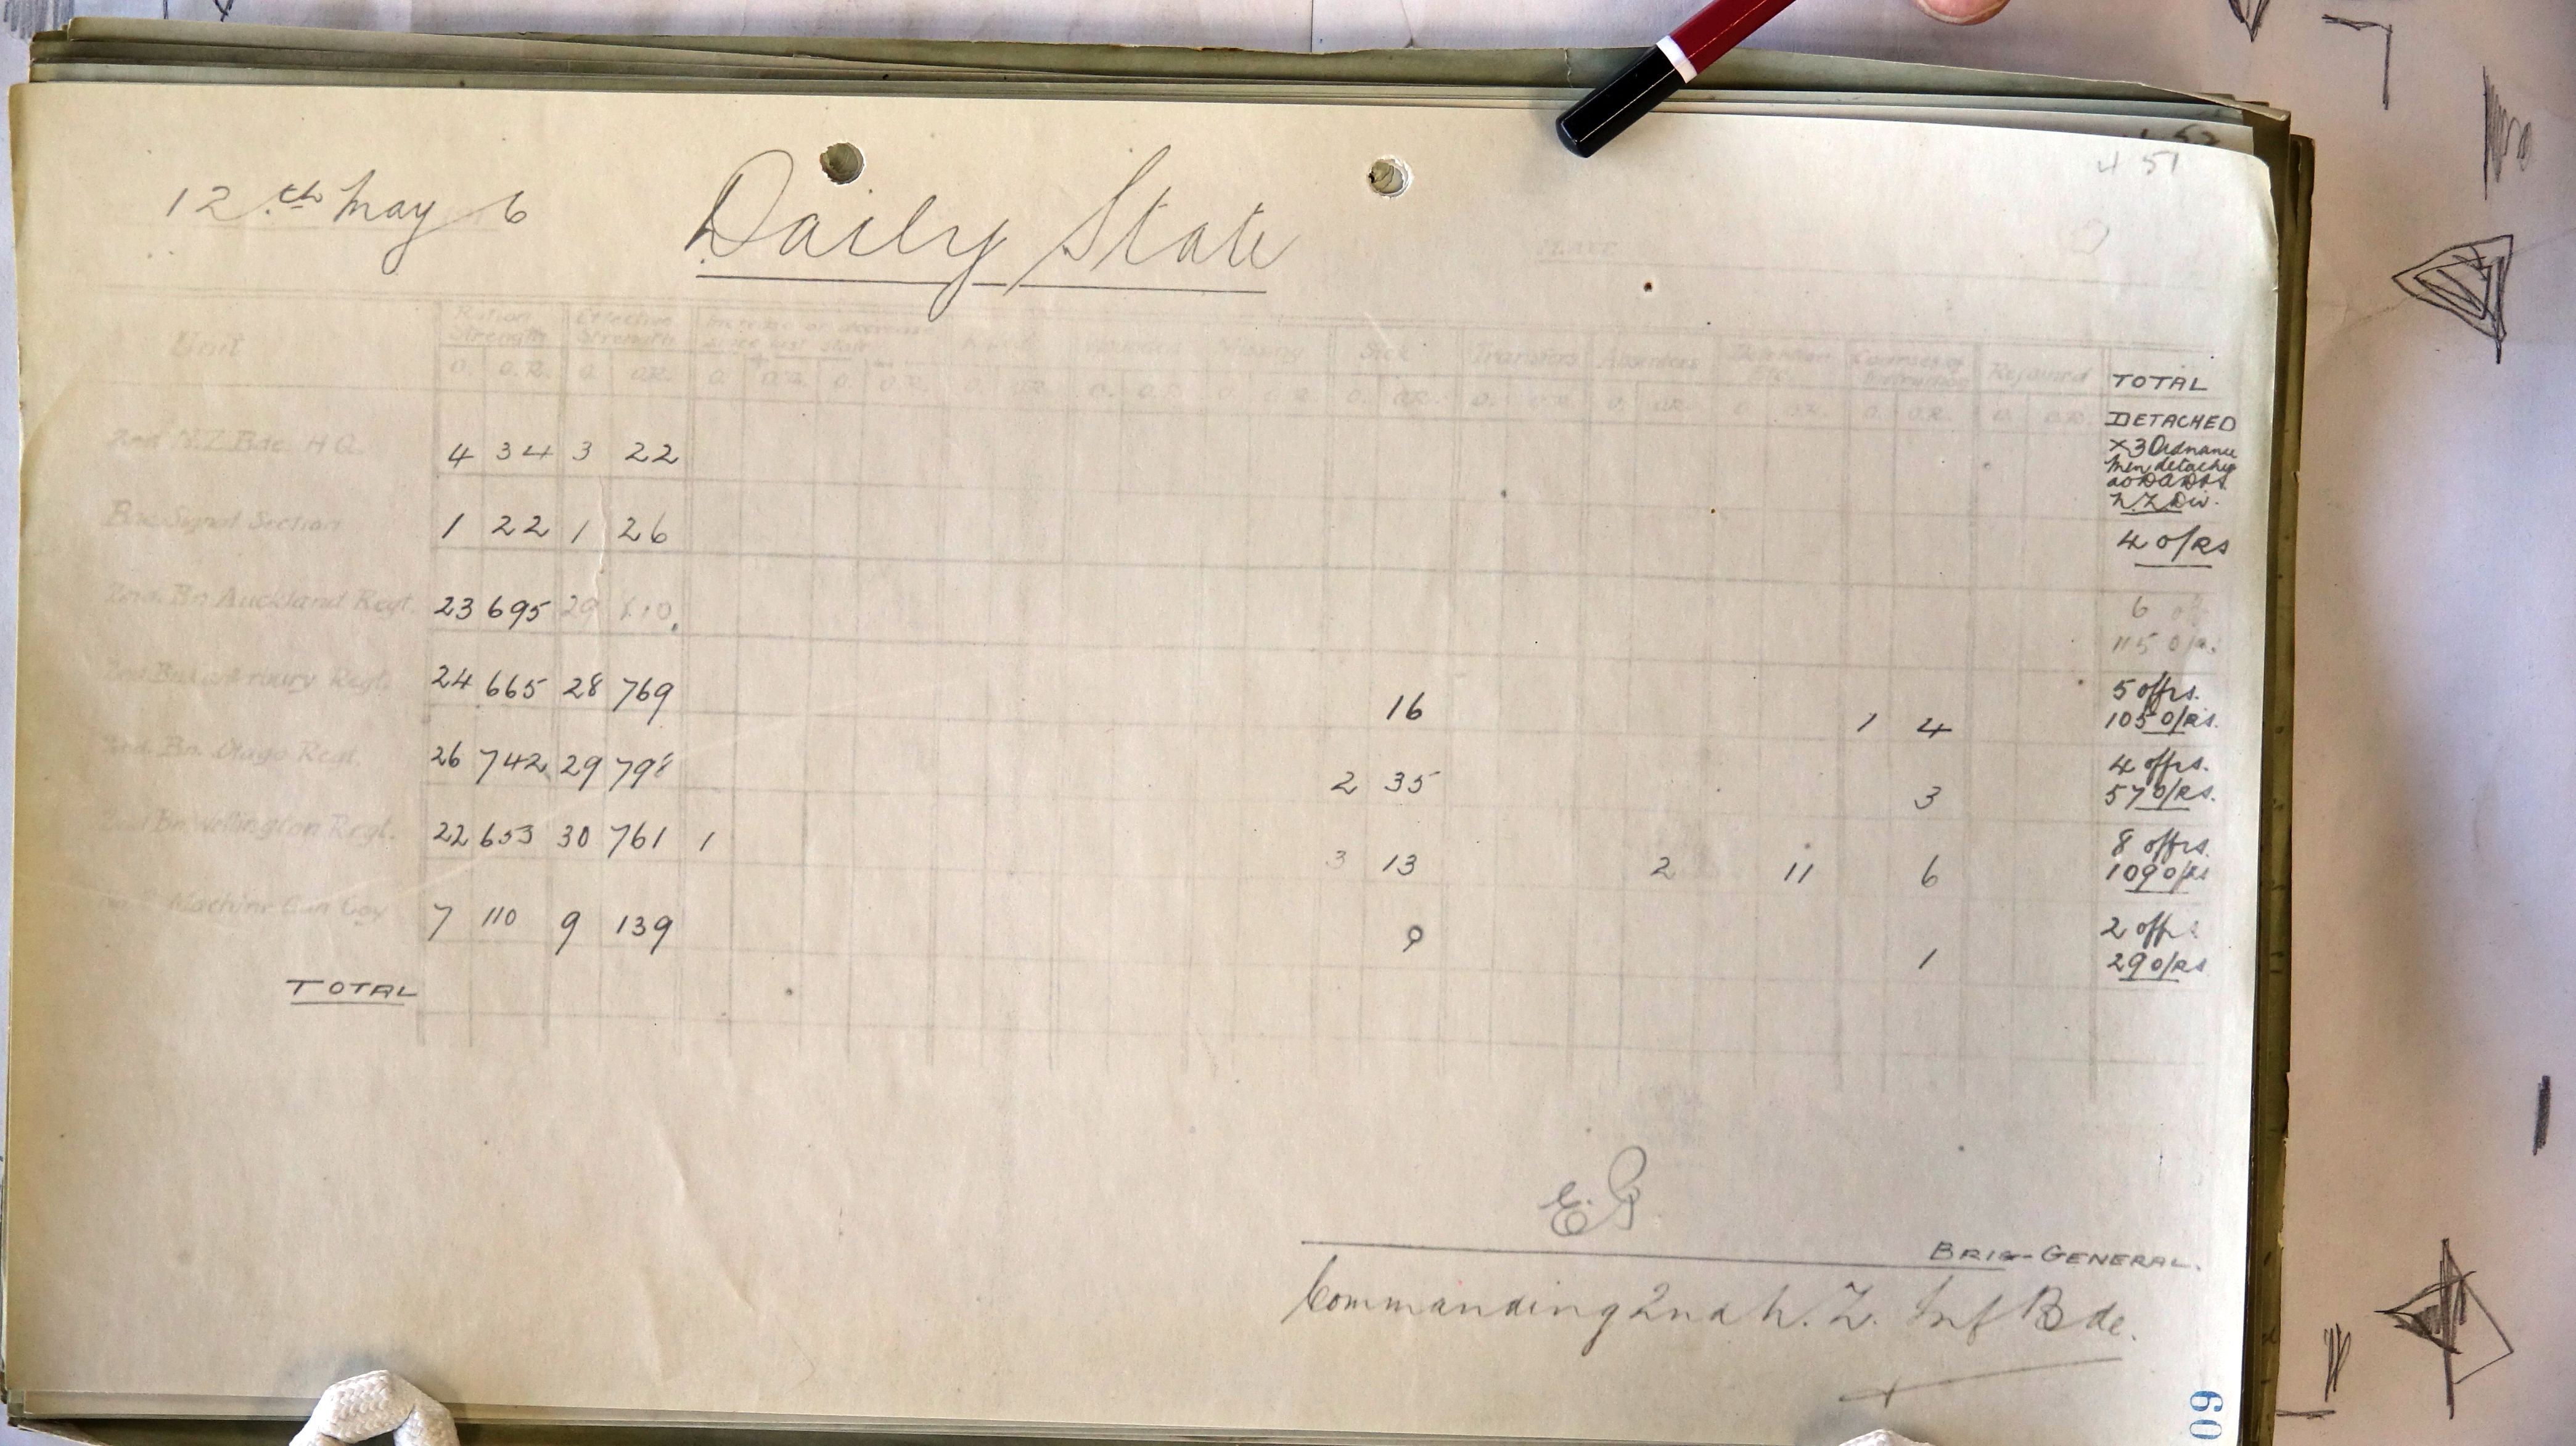 4 51
12th May 6
Daily State
Unit
Ration Strength
Effective Strength
Increase or decrease since last state
Wounded
Missing
Sick
Transfers
Absentees
Courses of Instruction
Rejoined
TOTAL DETACHED
O. O.R. O. O.R. O. O.R. O. O.R. O. O.R. O. O.R. O. O.R. O. O.R. O. O.R. O. O.R. O. O.R. O. O.R. O. O.R.
2nd N.Z. Bde. H.Q. 4 34 3 22
x3 Ordnance
Men detached
N.Z. Div.
Bde Signal Section 1 22 1 26 4 o/Rs
2nd. Bn Auckland Regt. 23 695 29 6
115 o/Rs.
2nd Bn Canterbury Regt. 24 665 28 769 16 1 4 5 offrs.
105 o/Rs.
2nd. Bn. Otago Regt. 26 742 29 798 2 35 3 4 offrs.
57 o/Rs.
2nd Bn Wellington Regt. 22 653 30 761 1 3 13 2 11 6 8 offrs.
109 o/Rs
Machine Gun Coy 7 110 9 139 9 1 2 offrs
29 o/Rs
TOTAL
BRIG-GENERAL.
Commanding 2nd N. Z. Inf Bde.
60